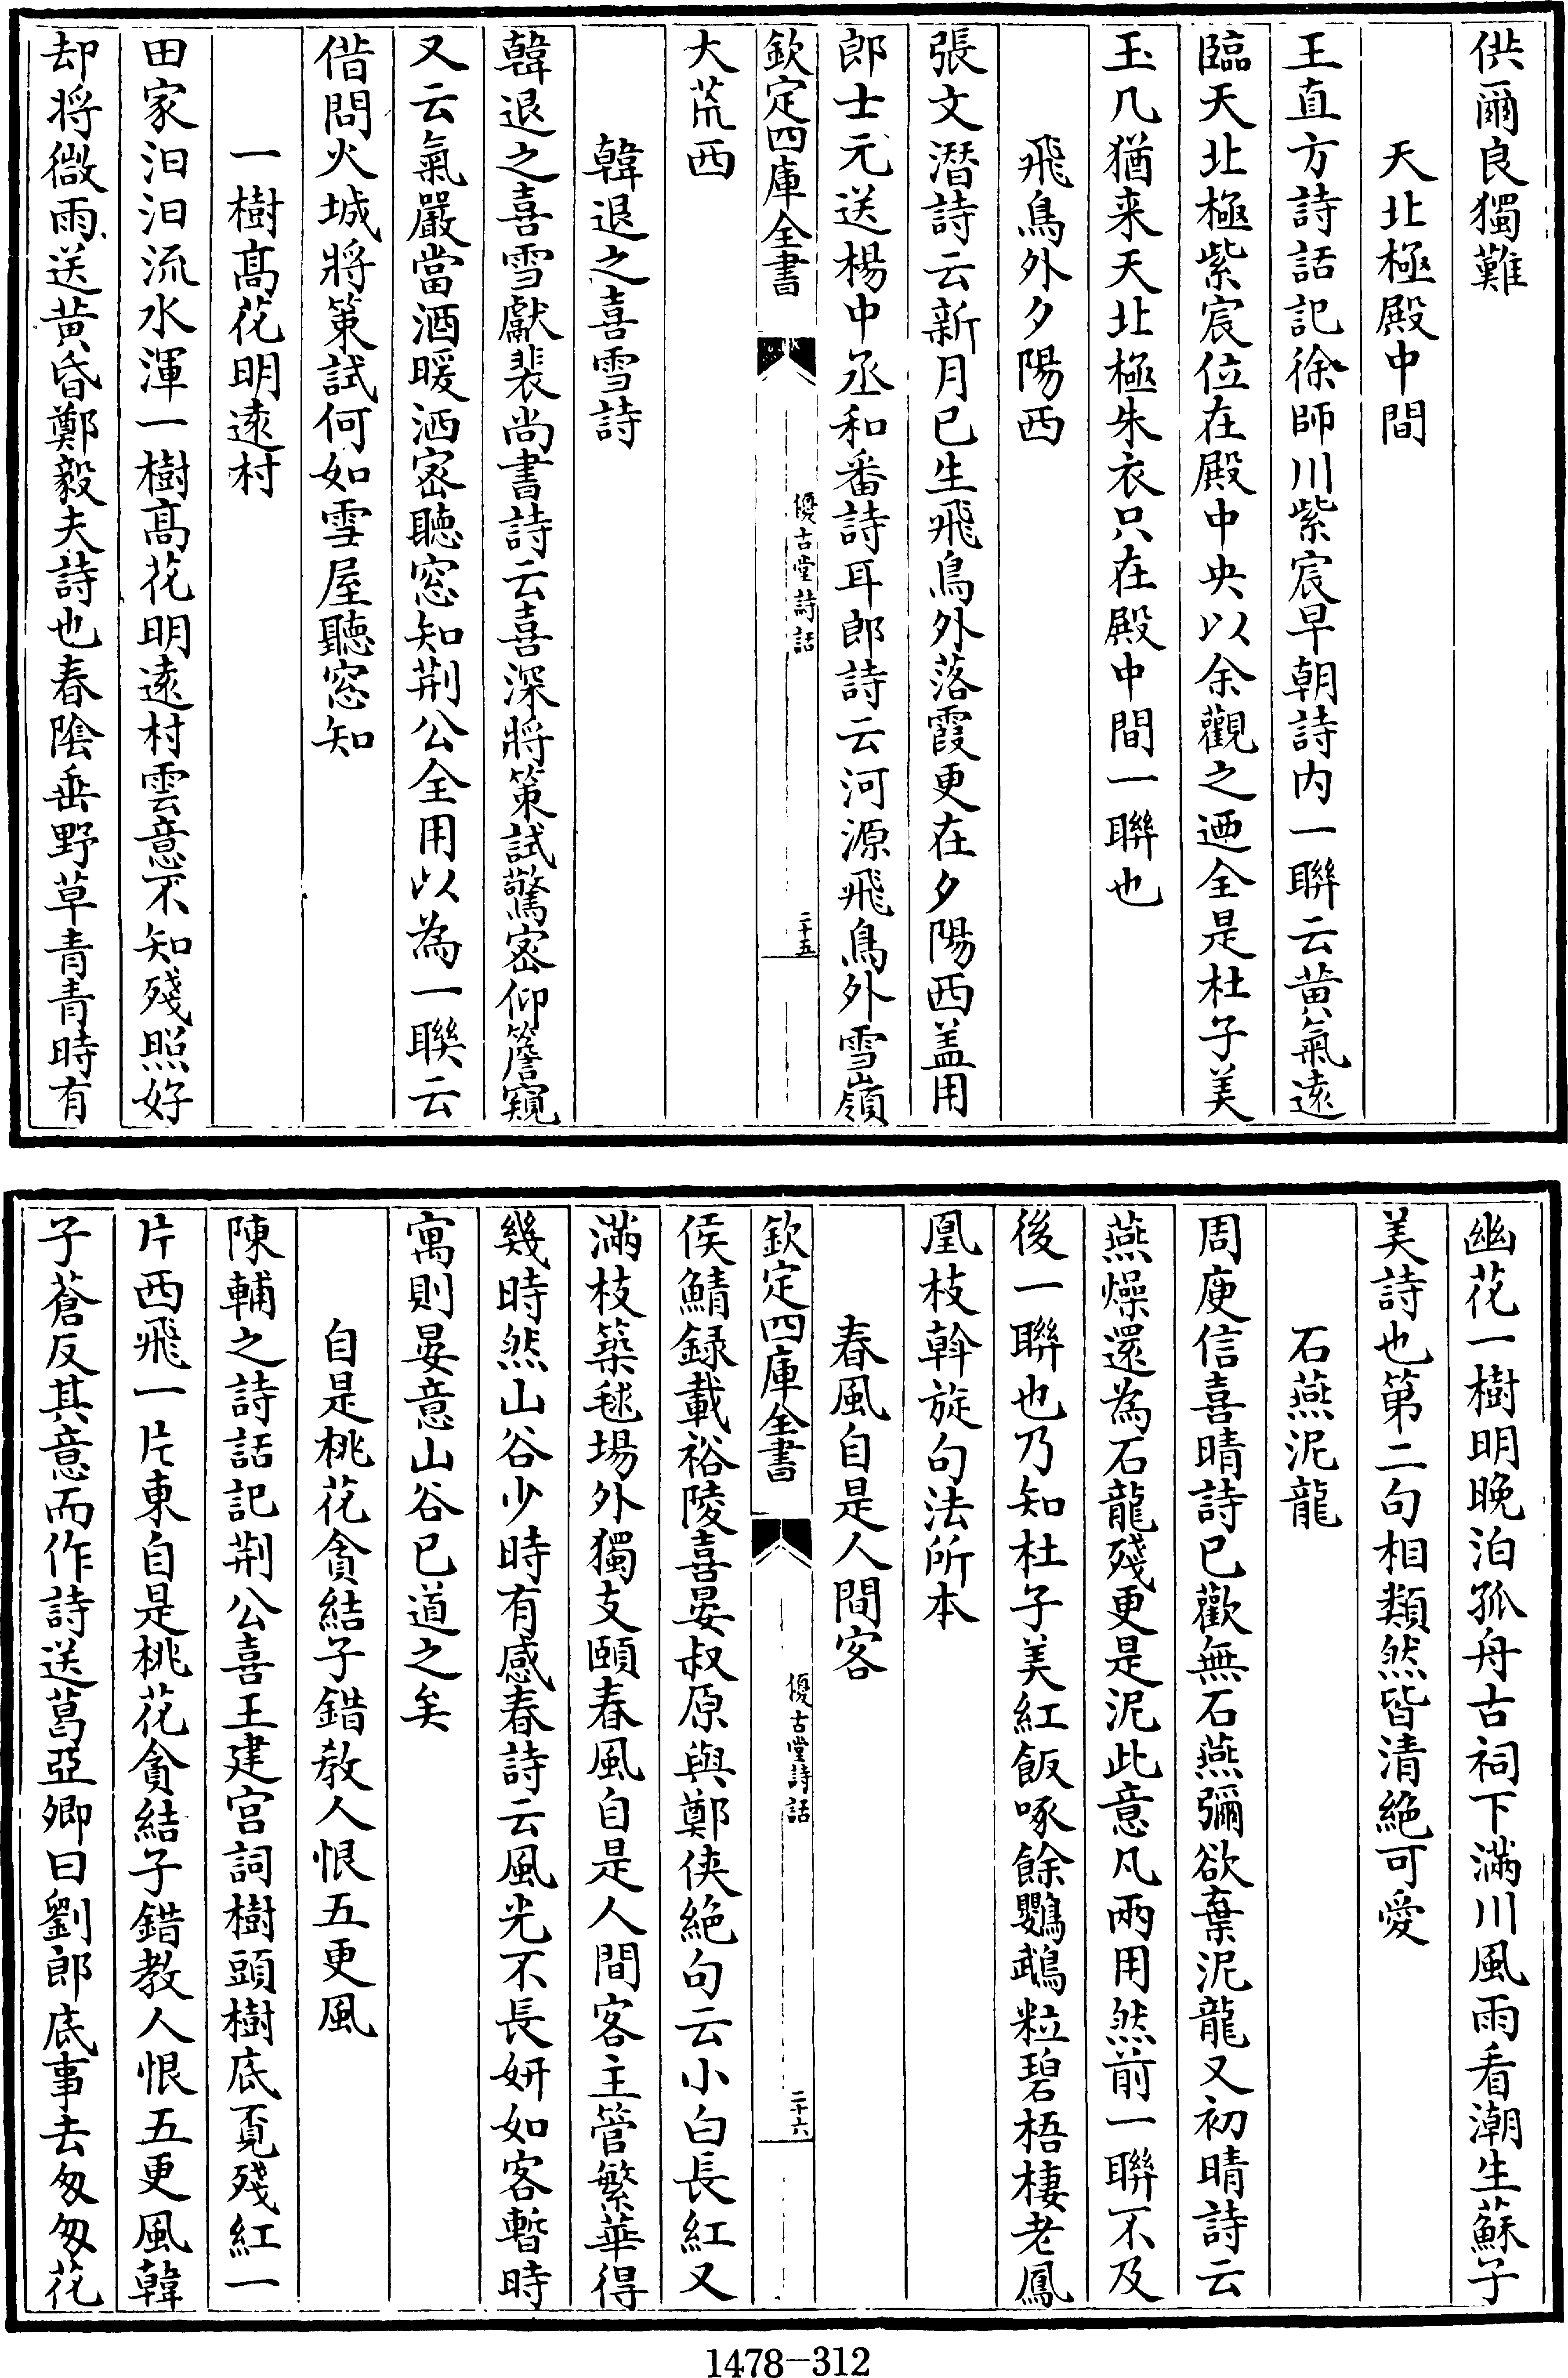 供爾良獨難
天北極殿中間
王直方詩話記徐師川紫宸早朝詩内一聯云黄氣逺
臨天北極紫宸位在殿中央以余觀之迺全是杜子美
玉几猶来天北極朱衣只在殿中間一聯也
飛鳥外夕陽西
張文潛詩云新月已生飛鳥外落霞更在夕陽西盖用
郎士元送楊中丞和番詩耳郎詩云河源飛鳥外雪嶺
欽定四庫全書
優古堂詩話
二十五
大荒西
韓退之喜雪詩
韓退之喜雪獻裴尚書詩云喜深將策試驚密仰簷窺
又云氣嚴當酒暖洒密聽窓知荆公全用以為一聯云
借問火城將策試何如雪屋聽窓知
一樹髙花明逺村
田家汩汩流水渾一樹髙花明逺村雲意不知殘照好
却將微雨送黄昏鄭毅夫詩也春陰垂野草青青時有
幽花一樹明晚泊孤舟古祠下滿川風雨看潮生蘇子
美詩也第二句相類然皆清絶可愛
石燕泥龍
周庾信喜晴詩已歡無石燕彌欲棄泥龍又初晴詩云
燕燥還為石龍殘更是泥此意凡兩用然前一聯不及
後一聯也乃知杜子美紅飯啄餘鸚鵡粒碧梧棲老鳳
凰枝斡旋句法所本
春風自是人間客
欽定四庫全書
優古堂詩話
二十六
侯鯖録載裕陵喜晏叔原與鄭俠絶句云小白長紅又
滿枝築毬場外獨支頤春風自是人間客主管繁華得
幾時然山谷少時有感春詩云風光不長妍如客暫時
寓則晏意山谷已道之矣
自是桃花貪結子錯教人恨五更風
陳輔之詩話記荆公喜王建宫詞樹頭樹底覔殘紅一
片西飛一片東自是桃花貪結子錯教人恨五更風韓
子蒼反其意而作詩送葛亞卿曰劉郎底事去匆匆花
1478-312